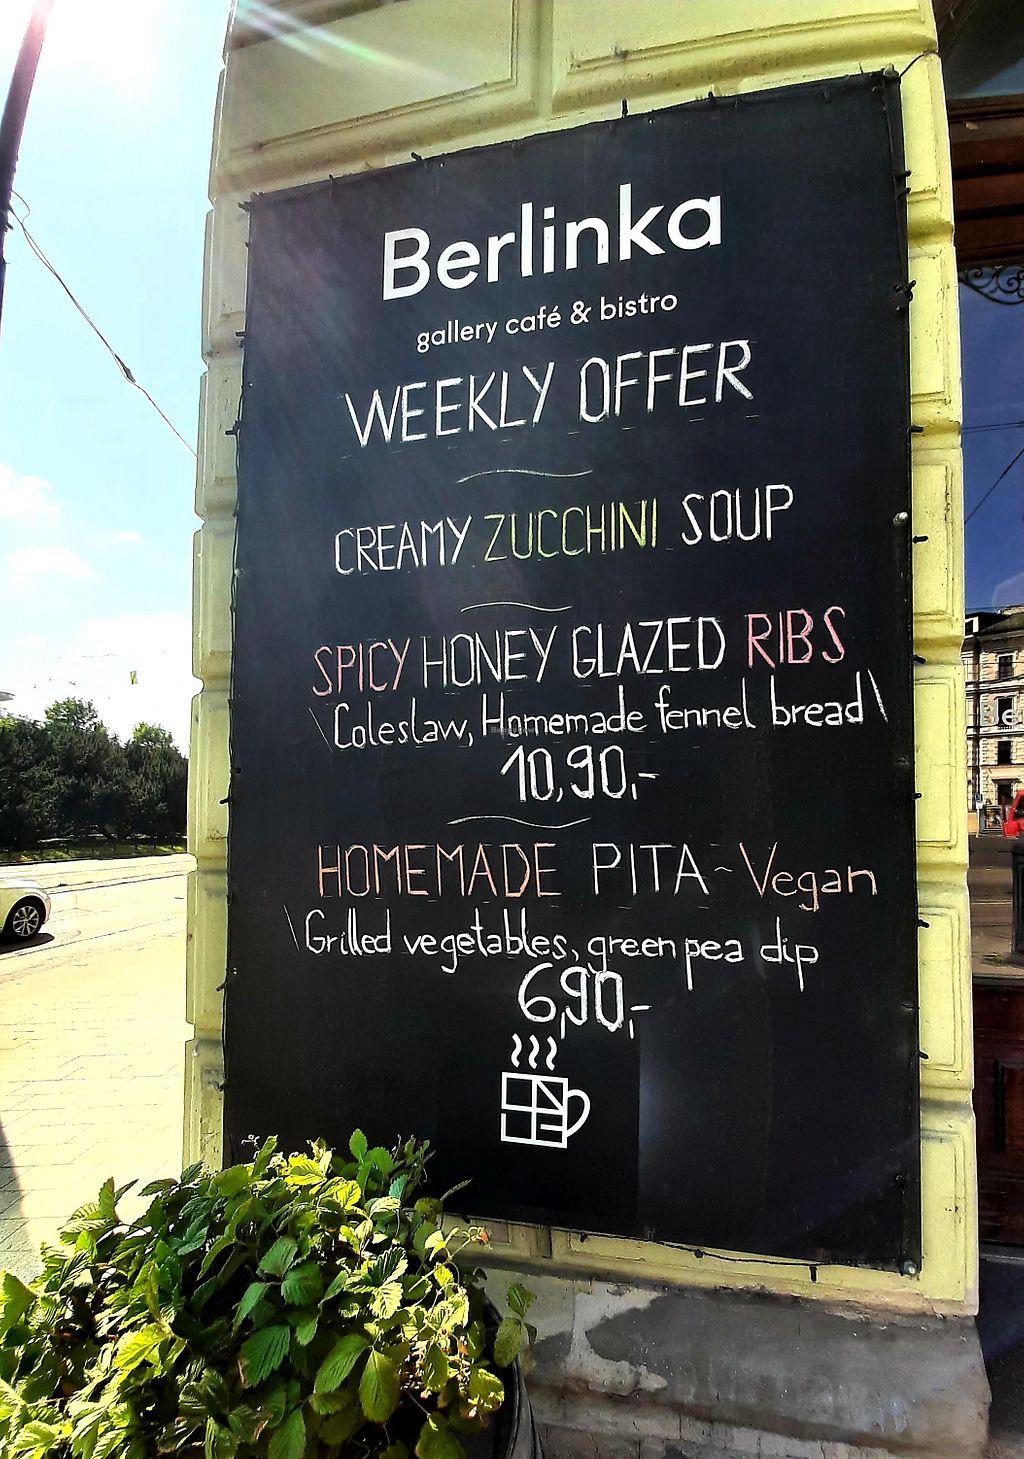 Berlinka
gallery café & bistro
WEEKLY OFFER
CREAMY ZUCCHINI SOUP
SPICY HONEY GLAZED RIBS
\Coleslaw, Homemade fennel bread\
10,90,-
HOMEMADE PITA ~ Vegan
\Grilled vegetables, green pea dip
6,90,-
Be